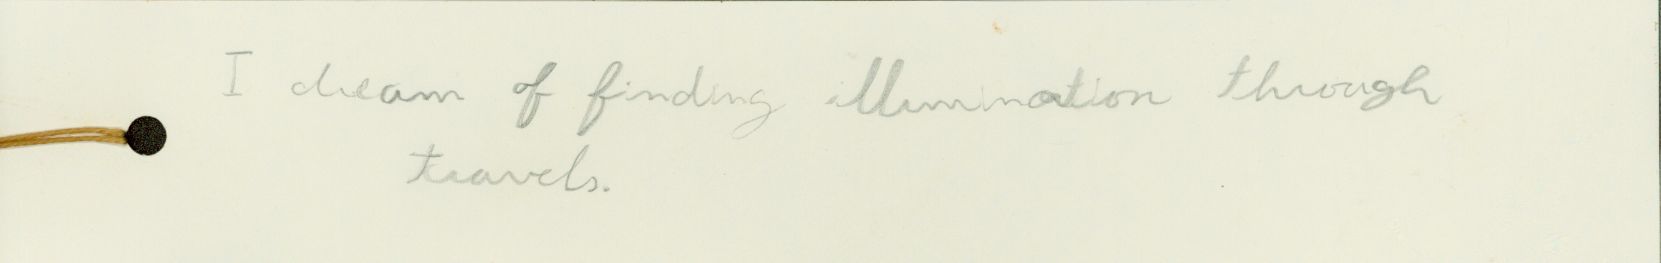 I dream of finding illumination through
travels.